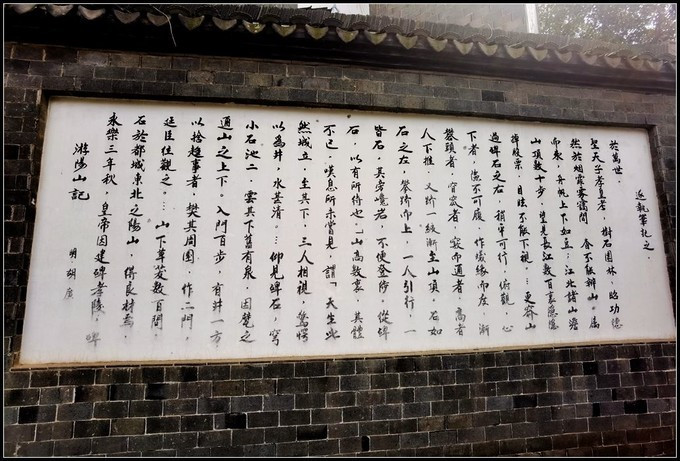 游陽山記
明 胡 廣
永樂三年秋 皇帝因建碑孝陵，
石於都城東北之陽山，得良材焉，
廷臣往觀之… 山下草 數百間，
以捨趨事者，樊其周圍 作二門，
通山之上下。入門百步 有井一方
小石池二 雲其下舊有泉，因甃之
以為井，水甚清。…仰見碑石，穹
然城立，至其下，三人相視，驚愕
不已，嘆息所未嘗見 謂「天生此
石，以有所待也」山高數裏 其體
皆石，其旁嶢岩，不便登陟 從碑
石之左，攀躋而上，一人引行，一
人下推，又躋一級漸至山頂，石如
鰲頭者 者 竅而通者，高者
下者， 不可履 作 緣而左，漸
過碑石之右，稍平可行 俯觀，心
掉股栗，目眩不敢下視。…更
山頂數十步，望見長江數百裏隱隱
而來，舟帆上下如豆；江北諸山澹
然於烟霏霧靄間 不敢 山。
聖天子孝皇考，樹石園林，昭功德
於萬世，
執筆記之